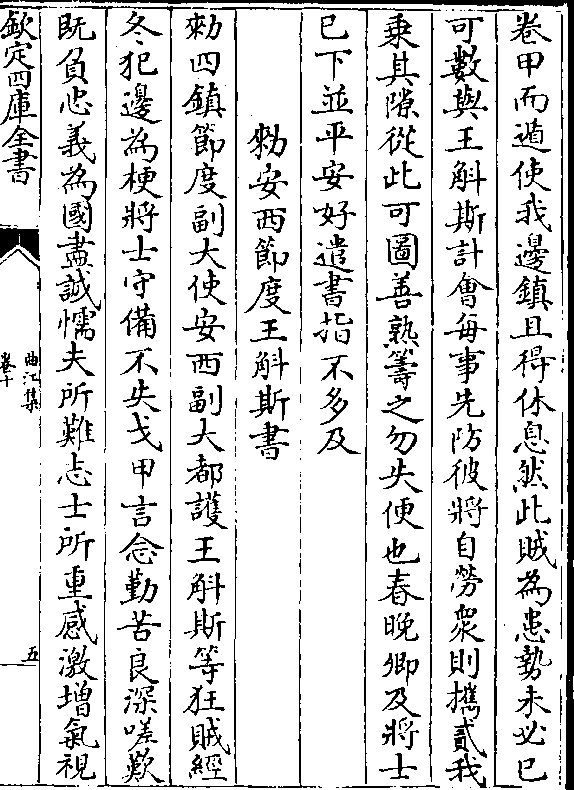 卷甲而遁使我邊鎮且得休息然此賊為患勢未必已
可數與王斛斯計會每事先防彼將自勞衆則攜貳我
乘其隙從此可圖善熟籌之勿失便也春晚卿及將士
已下並平安好遣書指不多及
勑安西節度王斛斯書
勑四鎮節度副大使安西副大都護王斛斯等狂賊經
冬犯邊為梗將士守備不失戈甲言念勤苦良深嗟歎
旣負忠義為國盡誠懦夫所難志士所重感激增氣視
欽定四庫全書
曲江集
卷十
五